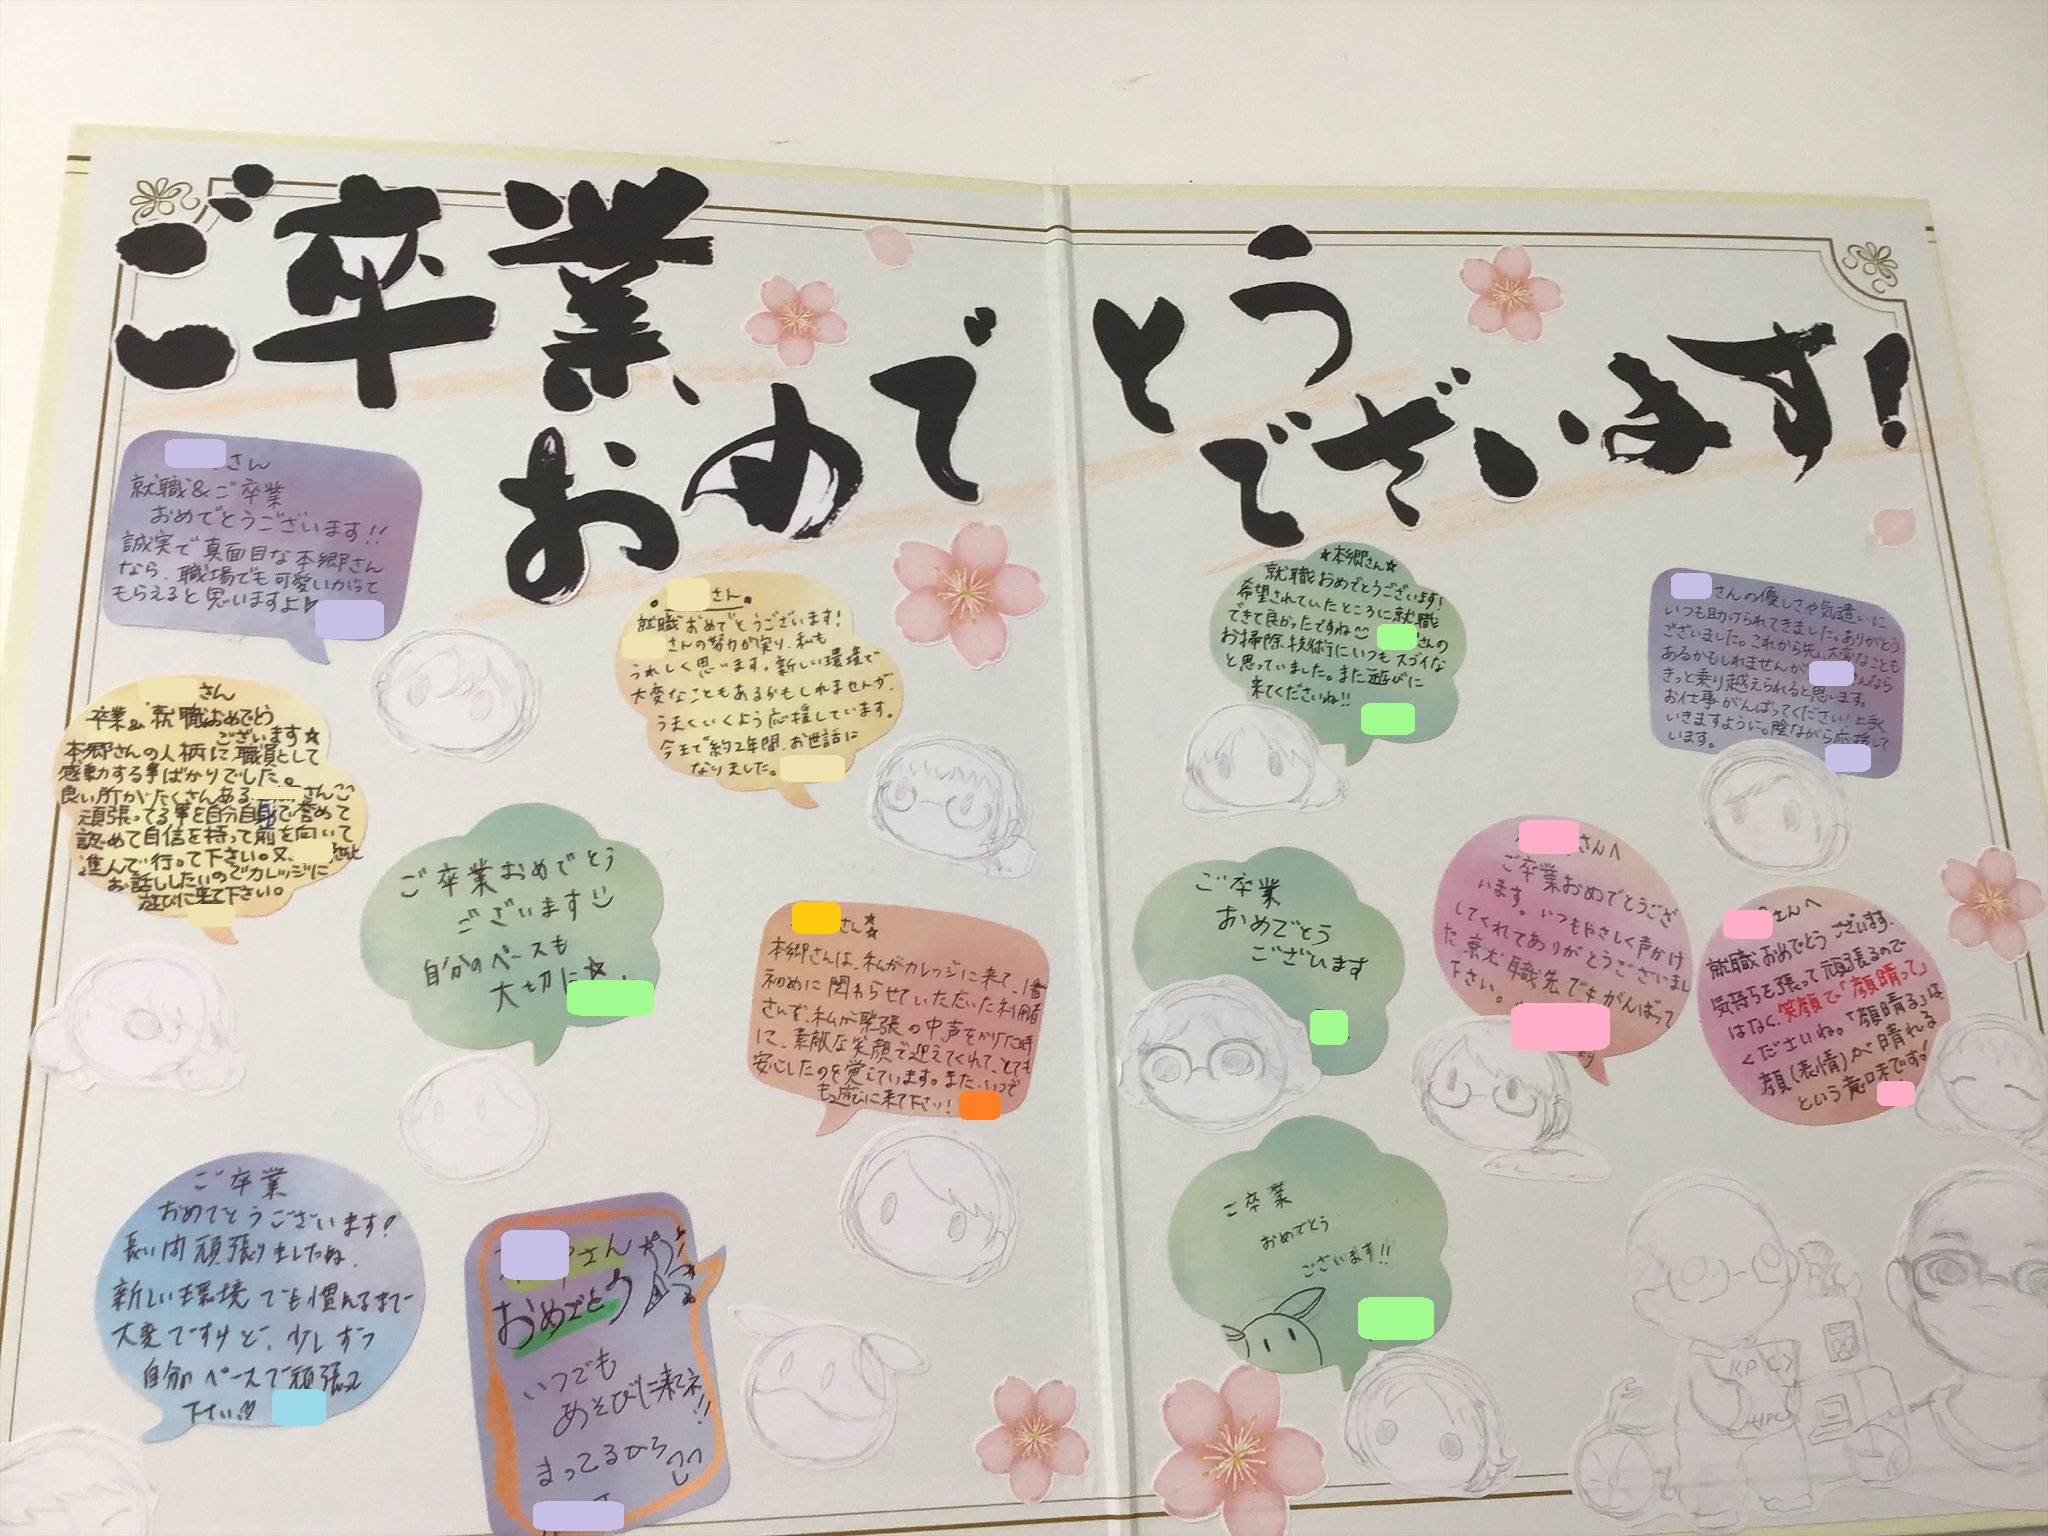 ご卒業
おめでとう
ございます!
さん
就職&ご卒業
おめでとうございます!!
誠実で真面目な本郷さん
なら、職場でも可愛いがって
もらえると思いますよ
さん
就職おめでとうございます!
さんの努力が実り、私も
うれしく思います。新しい環境で
大変なこともあるかもしれませんが、
うまくいくよう応援しています。
今まで約2年間、お世話に
なりました。
さん
卒業&就職おめでとう
ございます☆
本郷さんの人柄に職員として
感動する事ばかりでした。
良い所がたくさんある さん
頑張ってる事を自分自身で誉めて
認めて自信を持って前を向いて
進んで行って下さい。又、
お話ししたいのでカレッジに
遊びに来て下さい。
ご卒業おめでとう
ございます
自分のペースも
大切に☆
さん☆
本郷さんは、私がカレッジに来て、1番
初めに関わらせていただいた利用者
さんで、私が緊張の中声をかけた時
に、素敵な笑顔で迎えてくれて、とても
安心したのを覚えています。また、いつで
も遊びに来て下さい!
ご卒業
おめでとうございます!
長い間頑張りましたね。
新しい環境でも慣れるまで
大変ですけど、少しずつ
自分のペースで頑張って
下さい
さん
おめでとう
いつでも
あそびに来てネ!!
まってるから
☆本郷さん☆
就職おめでとうございます!
希望されていたところに就職
できて良かったですね さんの
お掃除技術にいつもスゴイな
と思っていました。また遊びに
来てくださいね!!
さんの優しさや気遣いに
いつも助けられてきました。ありがとう
ございました。これから先、大変なことも
あるかもしれませんが さんなら
きっと乗り越えられると思います。
お仕事がんばってください!上手く
いきますように。陰ながら応援して
います。
ご卒業
おめでとう
ございます
さんへ
ご卒業おめでとうござ
います。いつもやさしく声かけ
してくれてありがとうございまし
た。 職先でもがんばって
下さい。
さんへ
就職おめでとうございます。
気持ちを張って頑張るので
はなく、笑顔で「顔晴って」
くださいね。「顔晴る」は
顔(表情)が晴れる
という意味です!
ご卒業
おめでとう
ございます!!